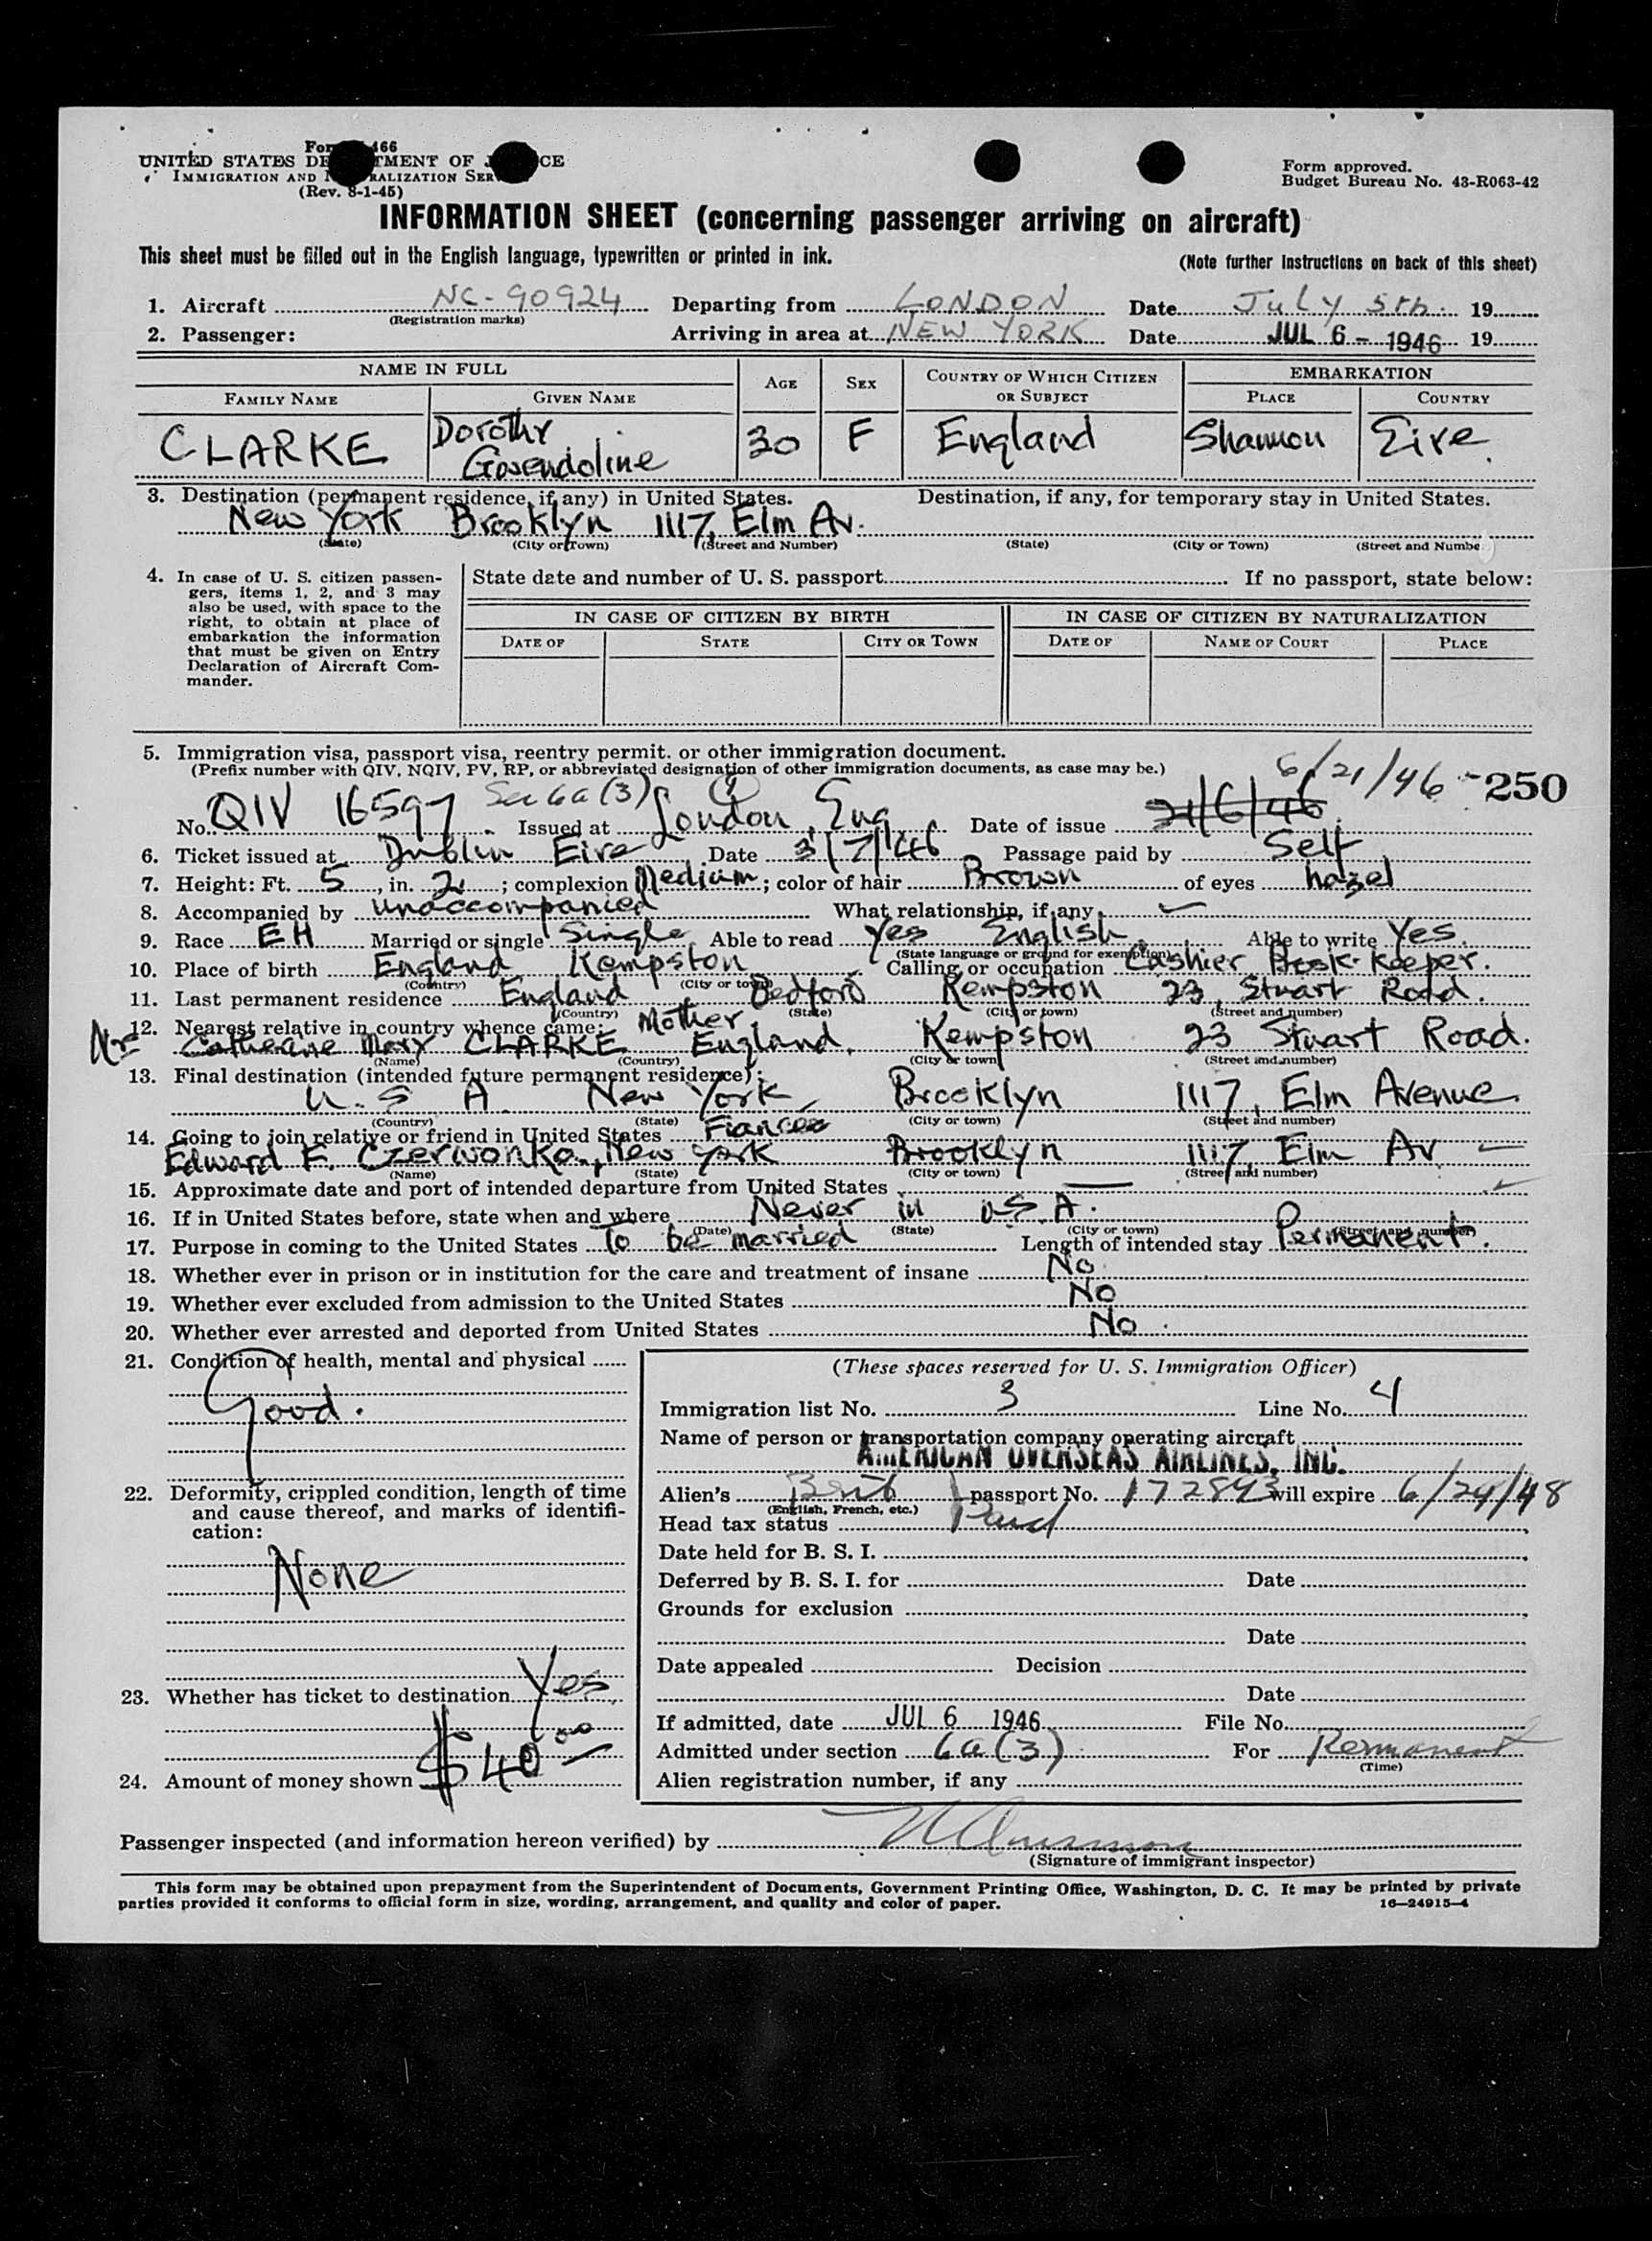 Form 466
UNITED STATES DEPARTMENT OF JUSTICE
IMMIGRATION AND NATURALIZATION SERVICE
(Rev. 8-1-45)
Form approved.
Budget Bureau No. 43-R063-42
INFORMATION SHEET (concerning passenger arriving on aircraft)
This sheet must be filled out in the English language, typewritten or printed in ink.
(Note further instructions on back of this sheet)
1. Aircraft NC-90924 Departing from LONDON Date July 5th 19
(Registration marks)
2. Passenger: Arriving in area at NEW YORK Date JUL 6 - 1946 19
NAME IN FULL AGE SEX COUNTRY OF WHICH CITIZEN OR SUBJECT EMBARKATION
FAMILY NAME GIVEN NAME PLACE COUNTRY
CLARKE Dorothy Gwendoline 30 F England Shannon Eire
3. Destination (permanent residence, if any) in United States. Destination, if any, for temporary stay in United States.
New York Brooklyn 1117, Elm Av.
(State) (City or Town) (Street and Number) (State) (City or Town) (Street and Numbe
4. In case of U. S. citizen passen-
gers, items 1, 2, and 3 may
also be used, with space to the
right, to obtain at place of
embarkation the information
that must be given on Entry
Declaration of Aircraft Com-
mander.
State date and number of U. S. passport If no passport, state below:
IN CASE OF CITIZEN BY BIRTH IN CASE OF CITIZEN BY NATURALIZATION
DATE OF STATE CITY OR TOWN DATE OF NAME OF COURT PLACE
5. Immigration visa, passport visa, reentry permit. or other immigration document.
(Prefix number with QIV, NQIV, PV, RP, or abbreviated designation of other immigration documents, as case may be.)
6/21/46 -250
No. QIV 16597 Sec 6a(3) Issued at London, Eng Date of issue 21/6/46
6. Ticket issued at Dublin Eire Date 3/7/46 Passage paid by Self
7. Height: Ft. 5, in. 2; complexion Medium; color of hair Brown of eyes hazel
8. Accompanied by Unaccompanied What relationship, if any
9. Race EH Married or single Single Able to read Yes English Able to write Yes.
(State language or ground for exemption)
10. Place of birth England Kempston Calling or occupation Cashier Book-Keeper.
(Country) (City or town)
11. Last permanent residence England Bedford Kempston 23, Stuart Road.
(Country) (State) (City or town) (Street and number)
12. Nearest relative in country whence came: Mother.
Catherine Mary CLARKE England, Kempston 23 Stuart Road.
(Name) (Country) (City or town (Street and number)
13. Final destination (intended future permanent residence):
U. S A. New York, Brooklyn 1117, Elm Avenue.
(Country) (State) (City or town) (Street and number)
14. Going to join relative or friend in United States Fiancee
Edward F. Czerwonka, New York Brooklyn 1117, Elm Av
(Name) (State) (City or town) (Street and number)
15. Approximate date and port of intended departure from United States
16. If in United States before, state when and where Never in U.S.A.
(Date) (State) (City or town) (Street and number)
17. Purpose in coming to the United States To be married Length of intended stay Permanent.
18. Whether ever in prison or in institution for the care and treatment of insane No
19. Whether ever excluded from admission to the United States No
20. Whether ever arrested and deported from United States No.
21. Condition of health, mental and physical
Good.
22. Deformity, crippled condition, length of time
and cause thereof, and marks of identifi-
cation:
None
23. Whether has ticket to destination Yes,
24. Amount of money shown $40.00
(These spaces reserved for U. S. Immigration Officer)
Immigration list No. 3 Line No. 4
Name of person or transportation company operating aircraft
AMERICAN OVERSEAS AIRLINES, INC.
Alien's Brit passport No. 172893 will expire 6/24/48
(English, French, etc.)
Head tax status Paid
Date held for B. S. I.
Deferred by B. S. I. for Date
Grounds for exclusion
Date
Date appealed Decision
Date
If admitted, date JUL 6 1946 File No.
Admitted under section 6a(3) For Permanent
(Time)
Alien registration number, if any
Passenger inspected (and information hereon verified) by
(Signature of immigrant inspector)
This form may be obtained upon prepayment from the Superintendent of Documents, Government Printing Office, Washington, D. C. It may be printed by private
parties provided it conforms to official form in size, wording, arrangement, and quality and color of paper. 16—24915-4